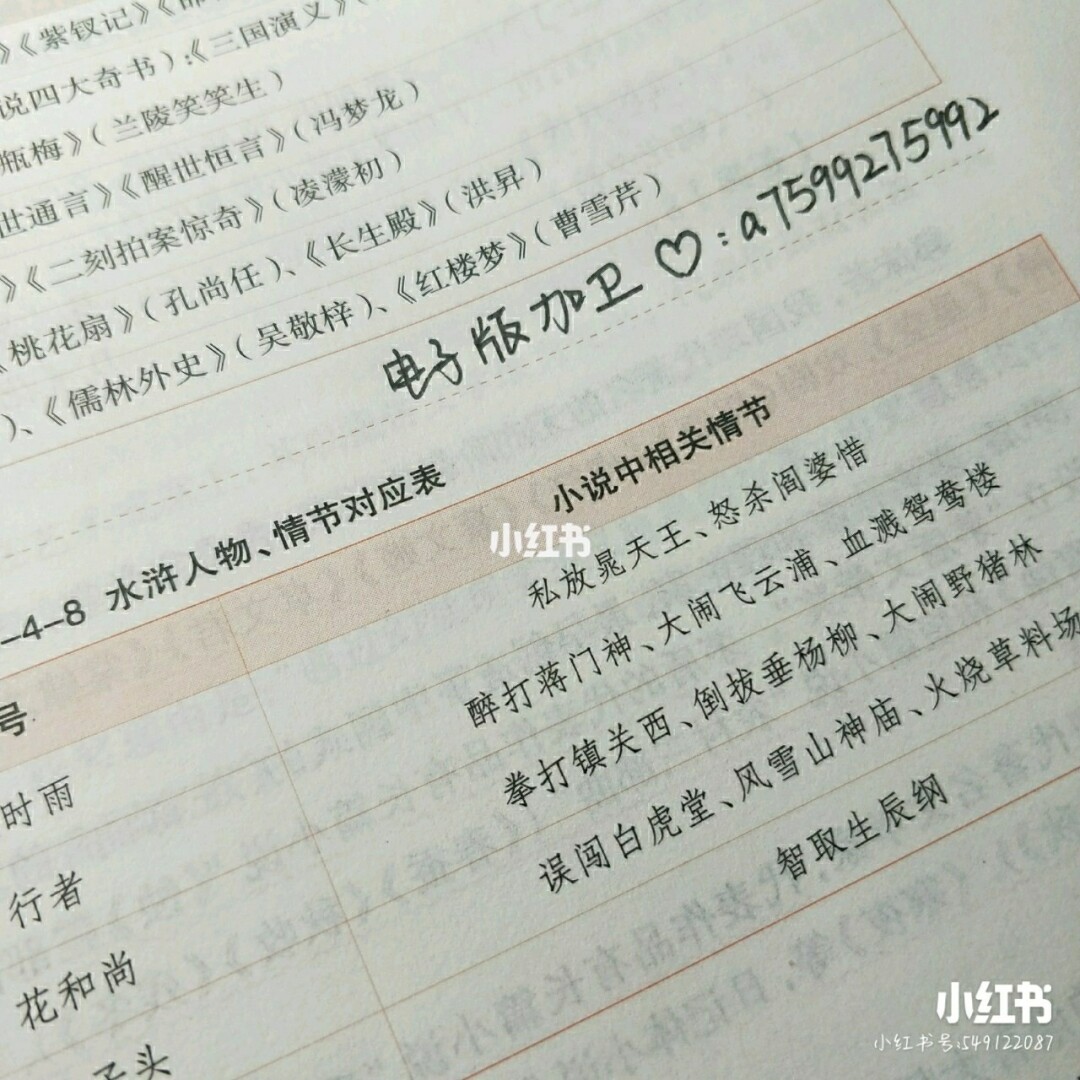 》《紫钗记》《
说四大奇书):《三国演义》
瓶梅》(兰陵笑笑生)
世通言》《醒世恒言》(冯梦龙)
》《二刻拍案惊奇》(凌濛初)
桃花扇》(孔尚任)、《长生殿》(洪昇)
)、《儒林外史》(吴敬梓)、《红楼梦》(曹雪芹)
电子版加卫♡:a7599275992
-4-8 水浒人物、情节对应表
号 小说中相关情节
时雨 私放晁天王、怒杀阎婆惜
行者 醉打蒋门神、大闹飞云浦、血溅鸳鸯楼
花和尚 拳打镇关西、倒拔垂杨柳、大闹野猪林
子头 误闯白虎堂、风雪山神庙、火烧草料场
智取生辰纲
小红书
小红书
小红书号:549122087